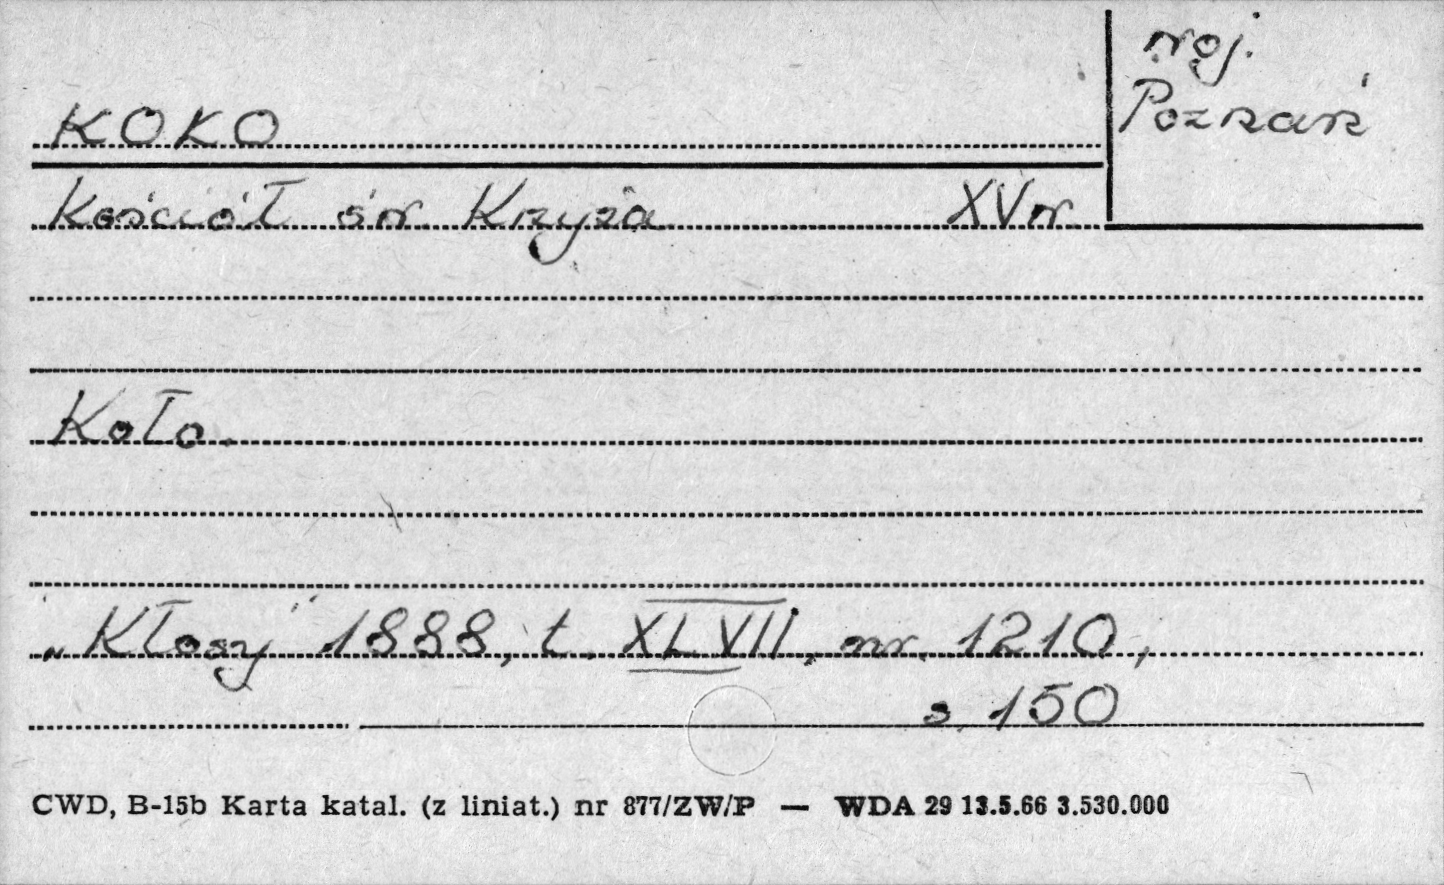 woj.
Poznań
KOKO
Kościół św. Krzyża XVw.
Koło.
„Kłosy" 1888, t. XLVII, nr. 1210,
s. 150
CWD, B-15b Karta katal. (z liniat.) nr 877/ZW/P — WDA 29 13.5.66 3.530.000